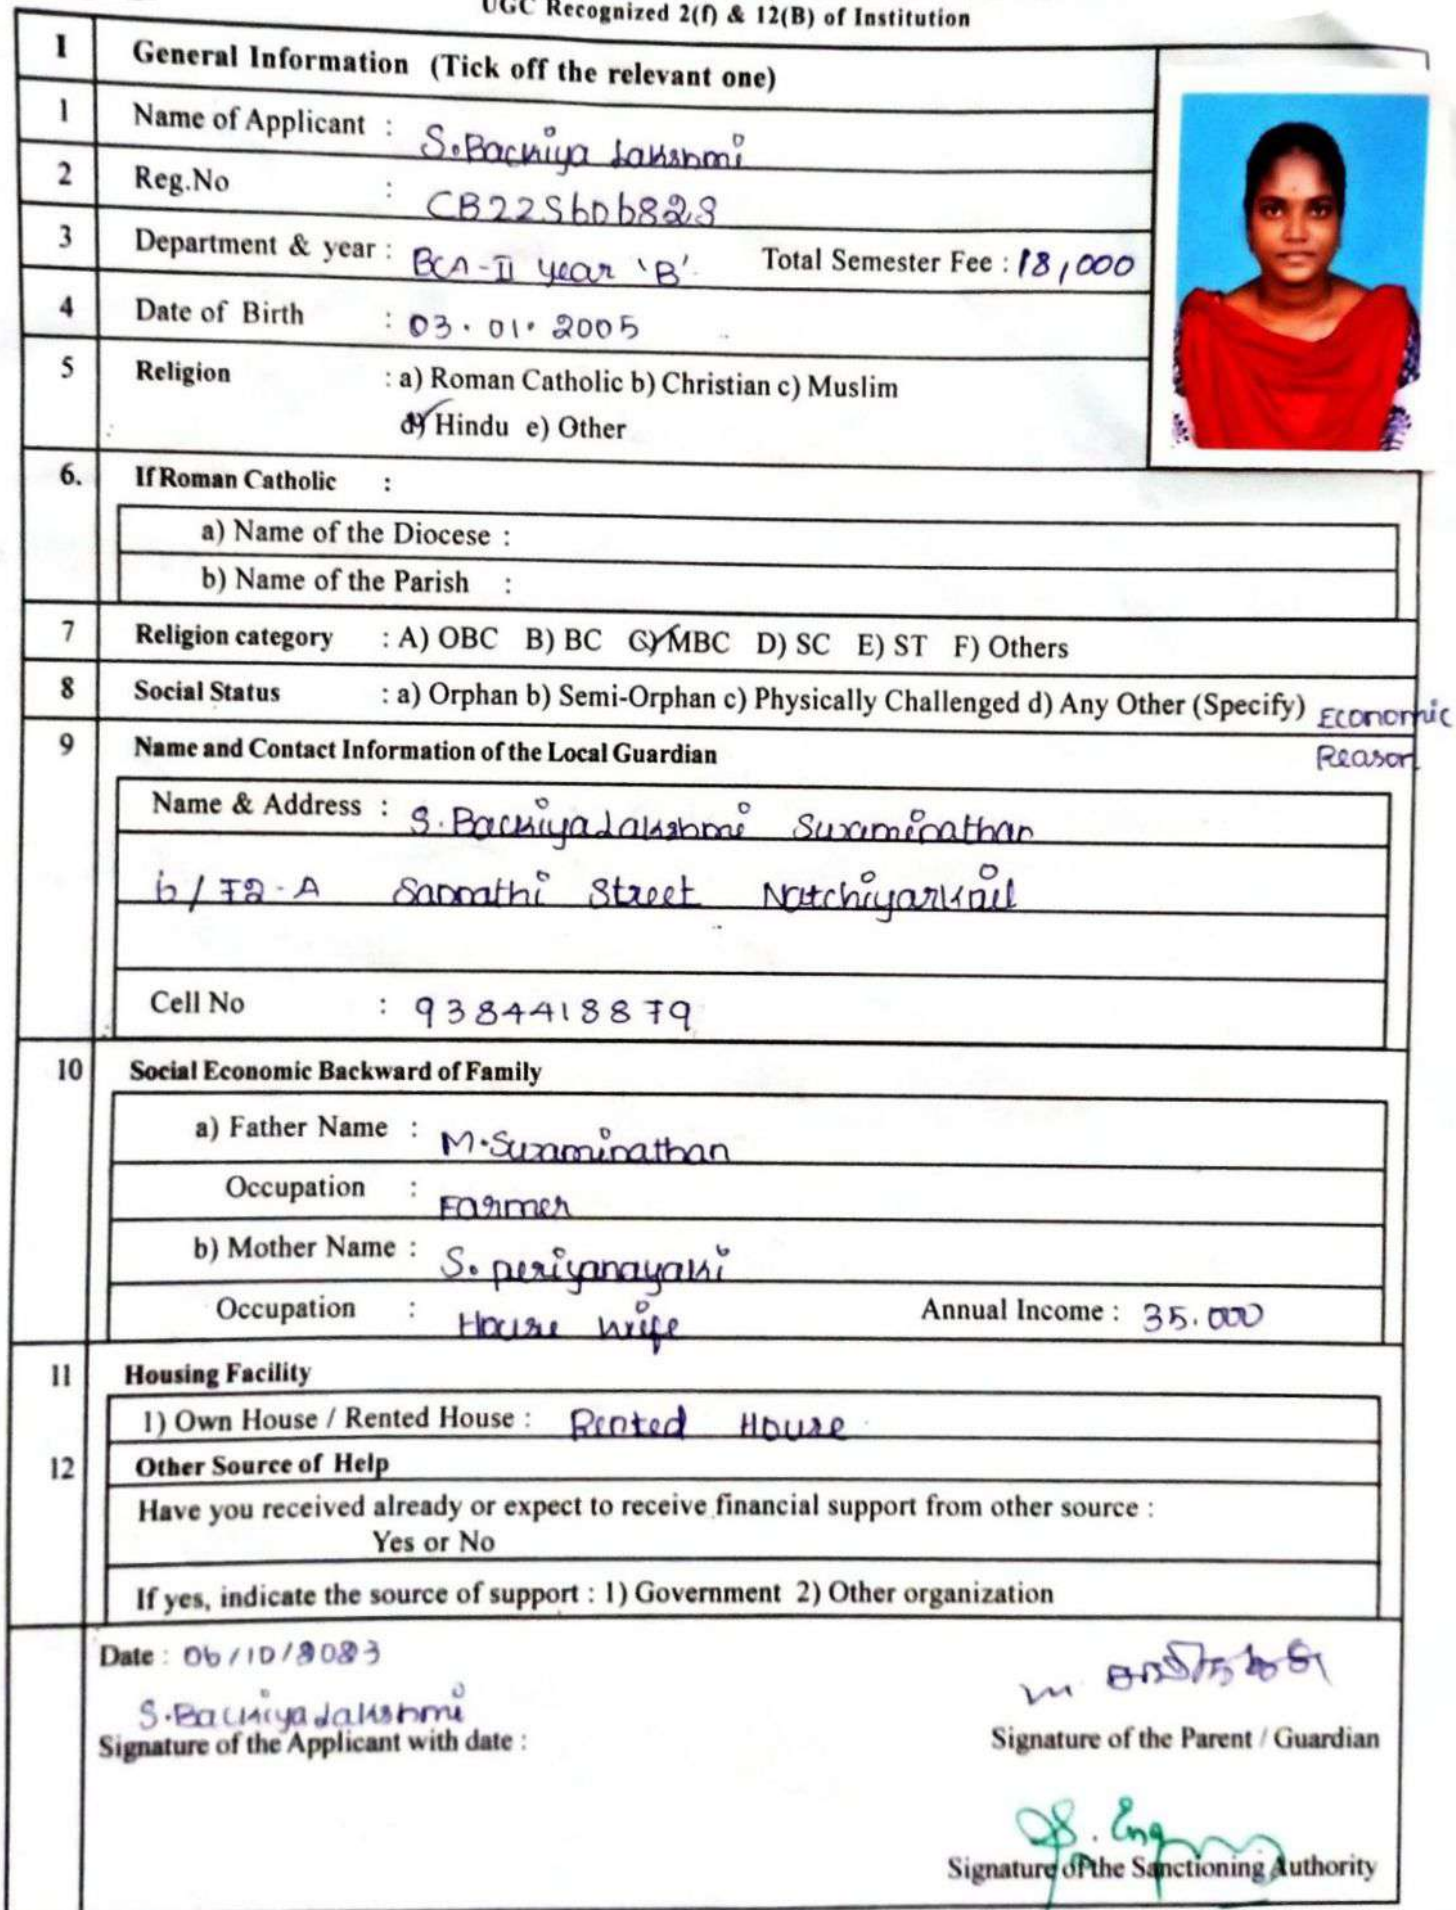 UGC Recognized 2(f) & 12(B) of Institution
I General Information (Tick off the relevant one)
1 Name of Applicant : S.Backiya Lakshmi
2 Reg.No : CB22S606828
3 Department & year : BCA-II year 'B' Total Semester Fee : 18,000
4 Date of Birth : 03.01.2005
5 Religion : a) Roman Catholic b) Christian c) Muslim
d) Hindu e) Other
6. If Roman Catholic :
a) Name of the Diocese :
b) Name of the Parish :
7 Religion category : A) OBC B) BC C) MBC D) SC E) ST F) Others
8 Social Status : a) Orphan b) Semi-Orphan c) Physically Challenged d) Any Other (Specify) Economic
Reason
9 Name and Contact Information of the Local Guardian
Name & Address : S.Backiyalakshmi Swaminathan
6/72-A Sannathi Street Natchiyarkoil
Cell No : 9384418879
10 Social Economic Backward of Family
a) Father Name : M.Swaminathan
Occupation : Farmer
b) Mother Name : S. periyanayaki
Occupation : House wife Annual Income : 35.000
11 Housing Facility
1) Own House / Rented House : Rented House
12 Other Source of Help
Have you received already or expect to receive financial support from other source :
Yes or No
If yes, indicate the source of support : 1) Government 2) Other organization
Date : 06/10/2023
S.Backiyalakshmi
Signature of the Applicant with date :
Signature of the Parent / Guardian
Signature of the Sanctioning Authority